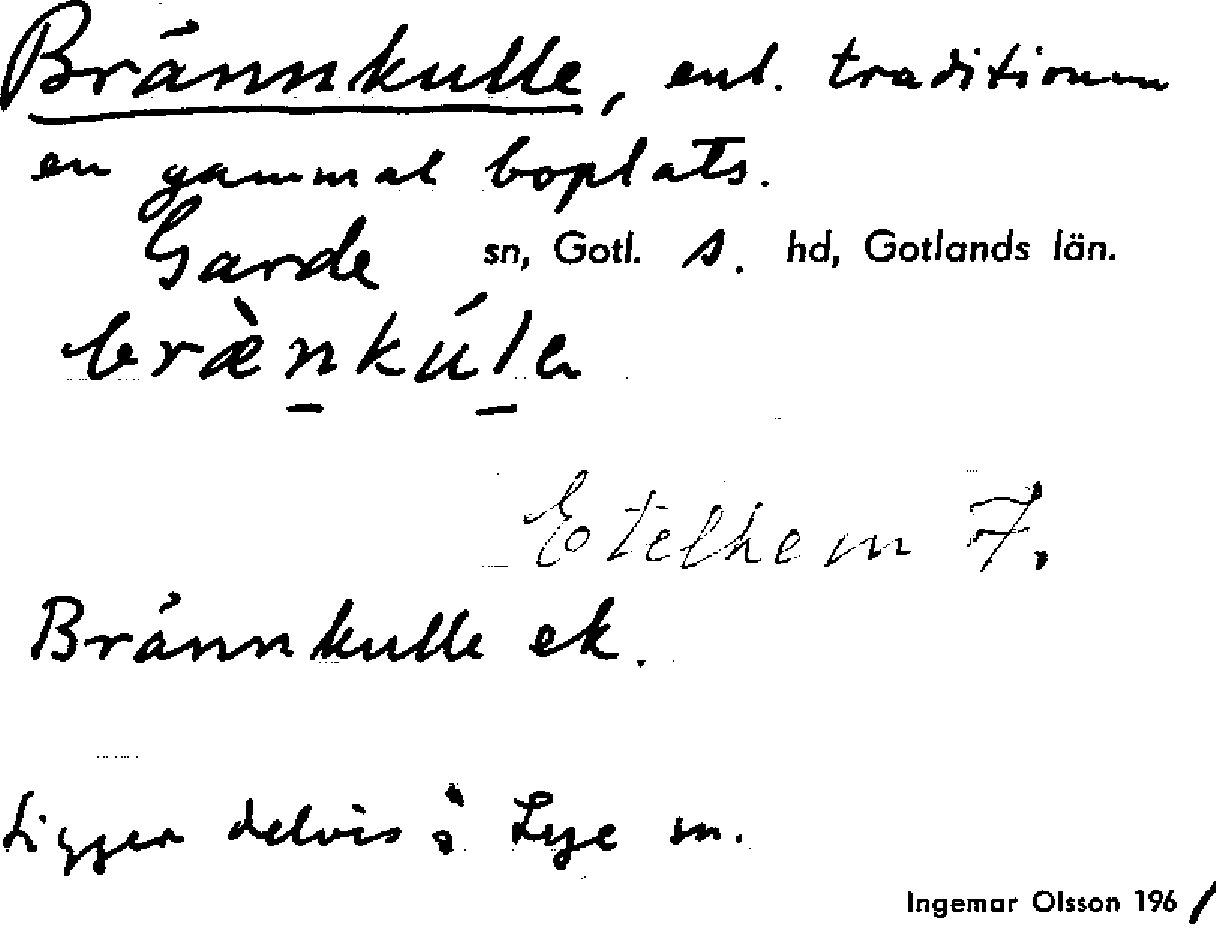 Brännkulle, enl. traditionen
en gammal boplats.
Garde sn, Gotl. S. hd, Gotlands län.
bræ̀n̠kú̠la
Etelhem 7.
Brännkulle ek.
Ligger delvis i Lye sn.
Ingemar Olsson 1961